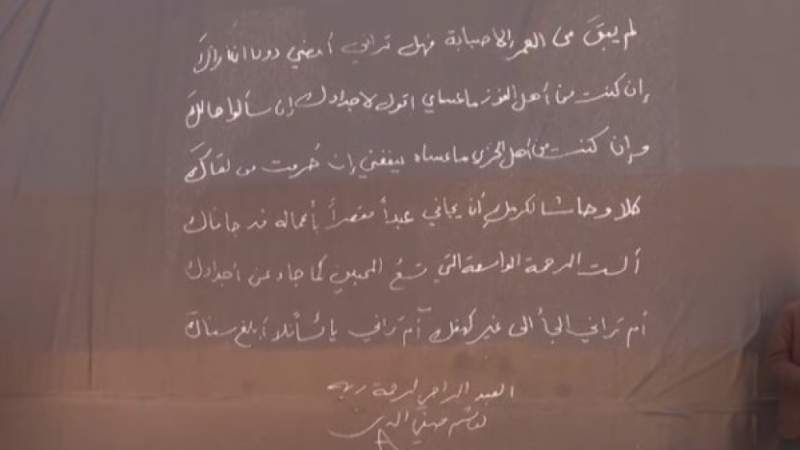 لم يبقَ من العمر إلا صبابة فهل تراني أمضي دون أن أراكَ
إن كنت من أهل الفوز ما عساي اقول لاجدادك إن سألوا حالك
وإن كنت من أهل الخزي ما عساه ينفعني إن حُرمت من لقاكَ
كلا وحاشا لكرمك أن يجافي عبداً مقصراً بأعماله قد جافاك
ألست الرحمة الواسعة التي تسعُ المحبين كما جاء عن أجدادك
أم تراني الجأ الى غير كهفك أم تراني يائساً أبلغ سناك
العبد الراجي لرحمة ربه